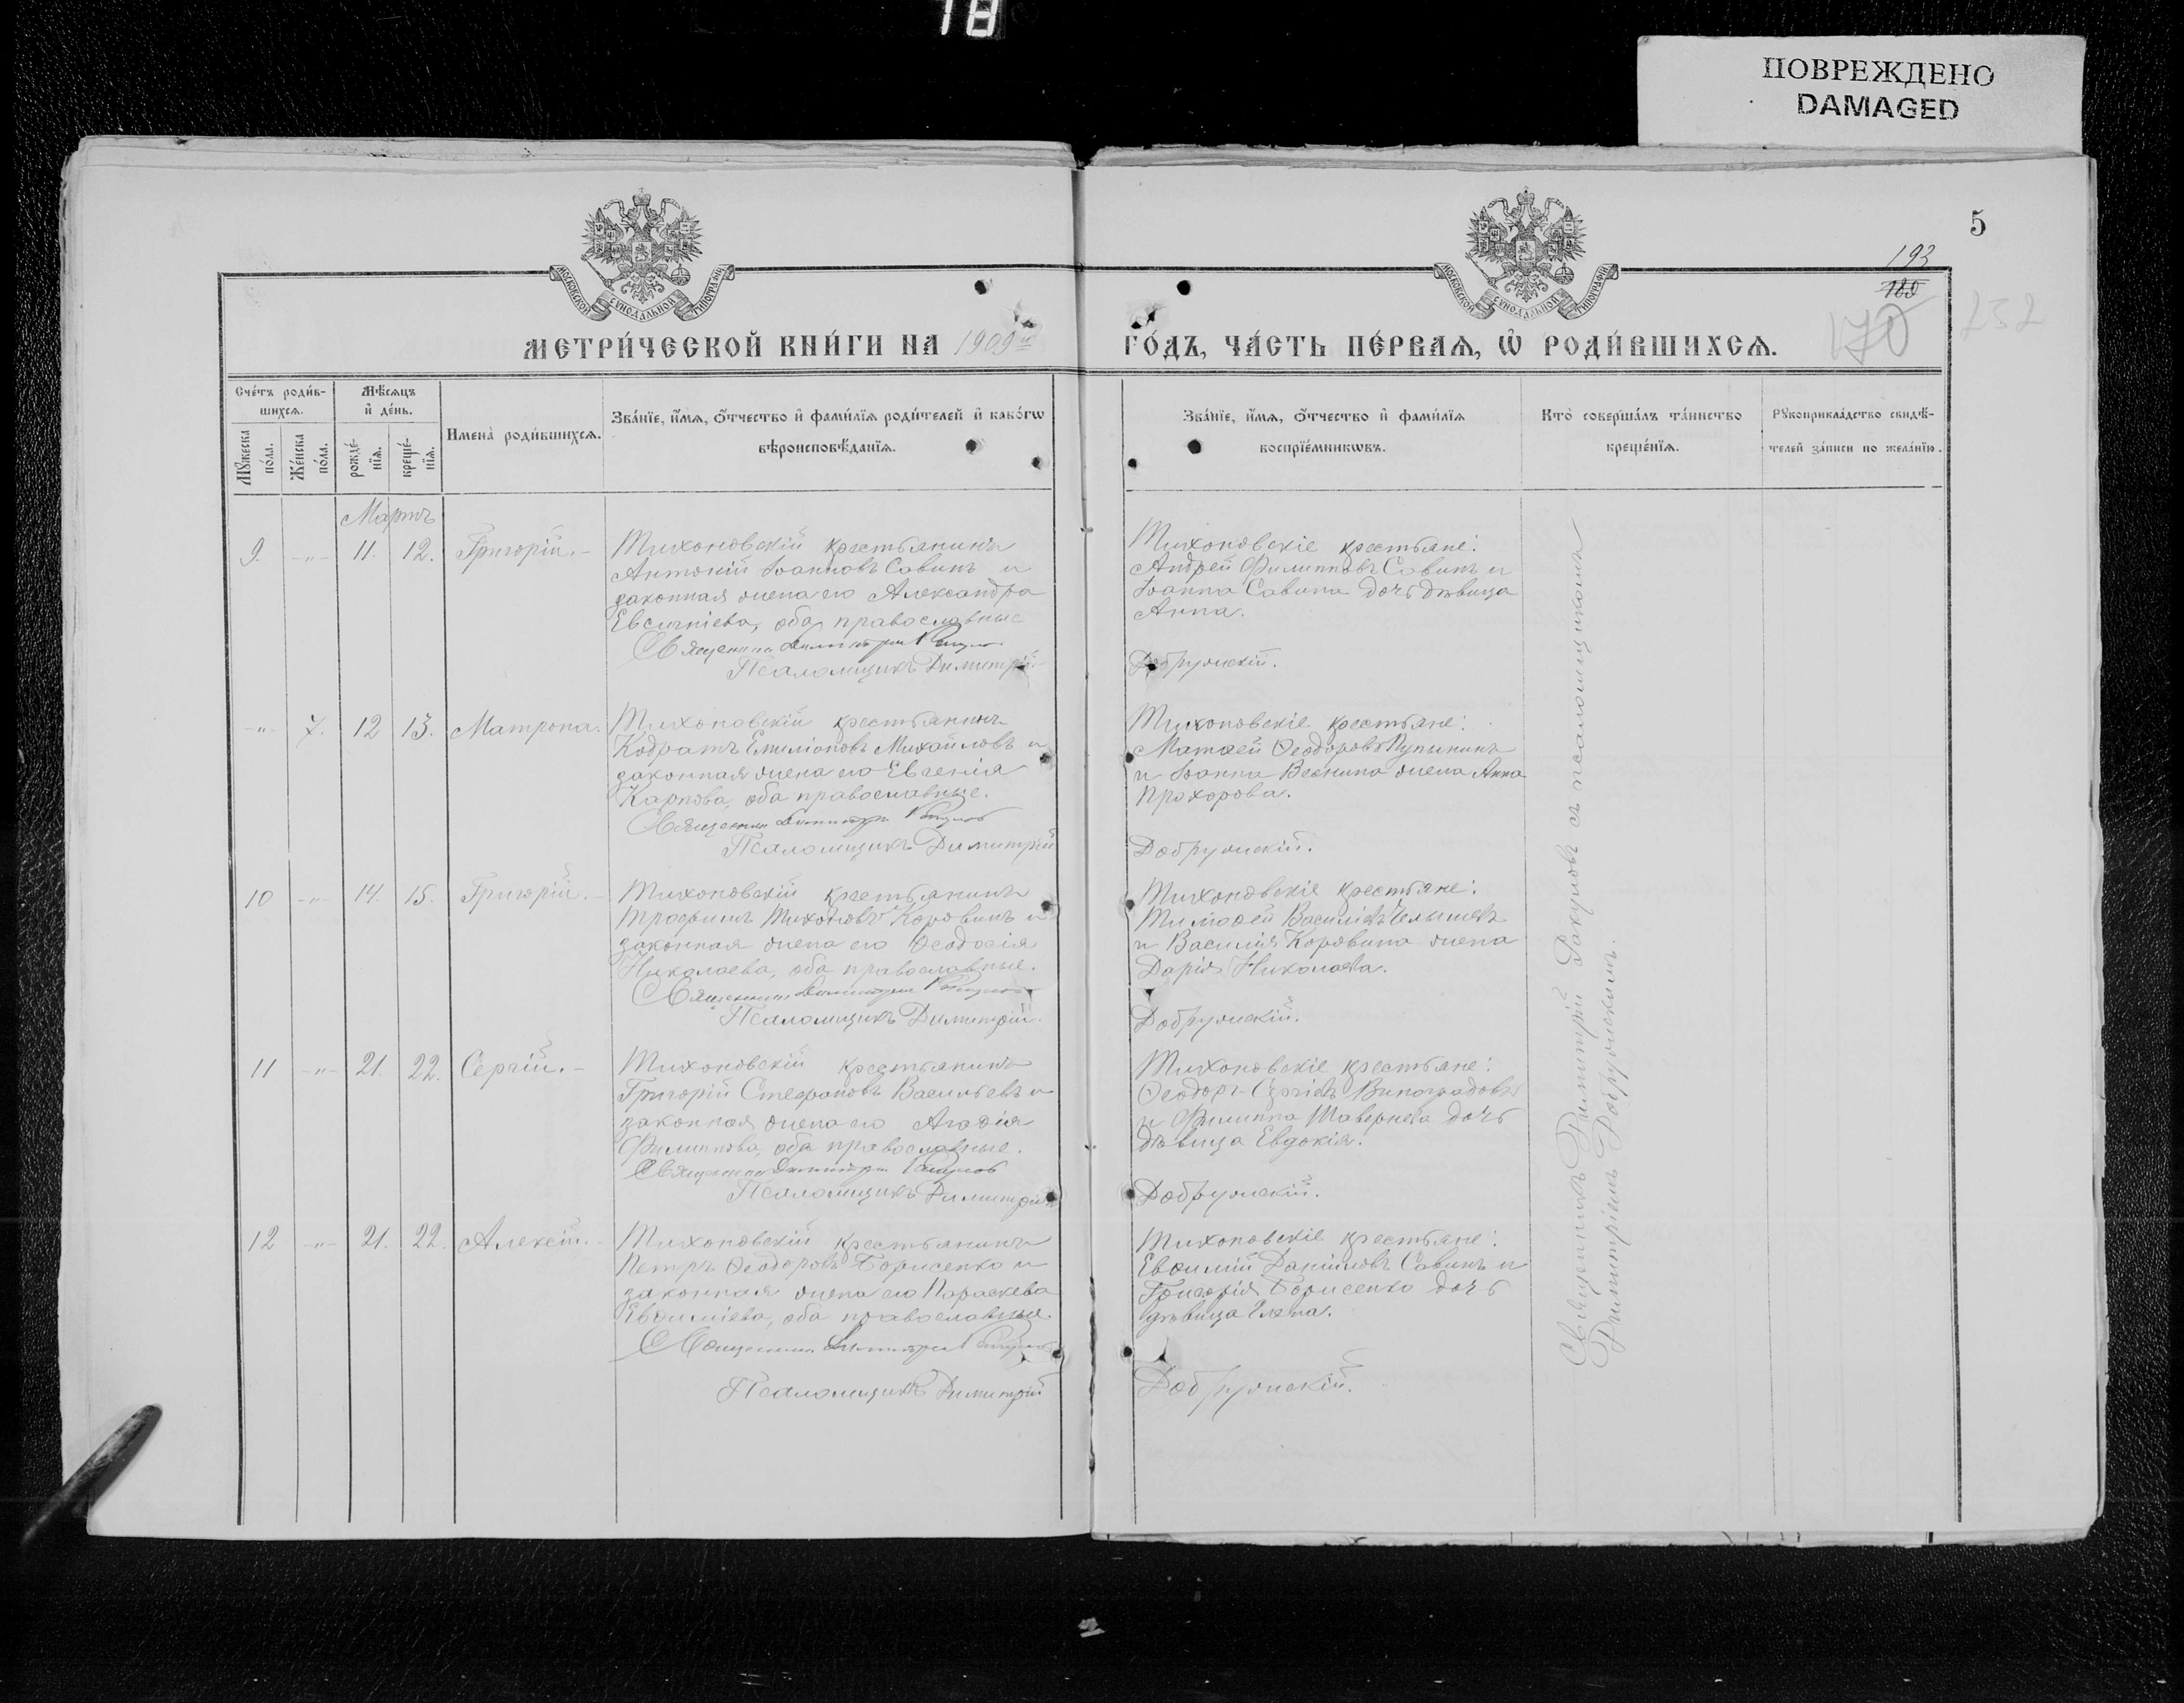 18
ПОВРЕЖДЕНО
DAMAGED
5
193
180
170
232
МОСКОВСКОЙ СУНОДАЛЬНОЙ ТИПОГРАФІИ
МОСКОВСКОЙ СУНОДАЛЬНОЙ ТИПОГРАФІИ
МЕТРИ́ЧЕСКОЙ КНИ́ГИ НА 1909й ГО́ДЪ, ЧА́СТЬ ПЕ́РВАѦ, Ѡ҆ РОДИ́ВШИХСѦ.
Сче́тъ роди́вшихсѧ.
Мꙋ́жеска по́ла.
Же́нска по́ла.
Мѣ́сѧцъ и҆ де́нь.
рожде́нїѧ.
креще́нїѧ.
Имена̀ роди́вшихсѧ.
Зва́нїе, и҆́мѧ, ѻ҆́тчество и҆ фами́лїѧ роди́телей и҆ како́гѡ вѣроисповѣ́данїѧ.
Зва́нїе, и҆́мѧ, ѻ҆́тчество и҆ фами́лїѧ воспрїе́мникѡвъ.
Кто̀ соверша́лъ та́инство креще́нїѧ.
Рꙋкоприкла́дство свидѣ́телей за́писи по жела́нїю.
Мартъ
9. -"- 11. 12. Григорій.-
Тихоновскій крестьянинъ
Антоній Іоанновъ Савинъ и
законная жена его Александра
Евсигніева, оба православные
Священникъ Димитрій Ракуновъ
Псаломщикъ Димитрій
Тихоновскіе крестьяне:
Андрей Филипповъ Савинъ и
Іоанна Савина дочь дѣвица
Анна.
Добружскій.
-"- 7. 12 13. Матрона.
Тихоновскій крестьянинъ
Кодратъ Емиліановъ Михайловъ и
законная жена его Евгенія
Карпова, оба православные.
Священникъ Димитрій Ракуновъ
Псаломщикъ Димитрій
Тихоновскіе крестьяне:
Матѳей Ѳеодоровъ Пупынинъ
и Іоанна Веснина жена Анна
Прохорова.
Добружскій.
10 -"- 14. 15. Григорій.-
Тихоновскій крестьянинъ
Трофимъ Тихоновъ Коровинъ и
законная жена его Ѳеодосія
Николаева, оба православные.
Священникъ Димитрій Ракуновъ
Псаломщикъ Димитрій.
Тихоновскіе крестьяне:
Тимоѳей Василіевъ Челышевъ
и Василія Коровина жена
Дарія Николаева.
Добружскій.
11 -"- 21. 22. Сергій.-
Тихоновскій крестьянинъ
Григорій Стефановъ Васильевъ и
законная жена его Агаѳія
Филиппова, оба православные.
Священникъ Димитрій Ракуновъ
Псаломщикъ Димитрій
Тихоновскіе крестьяне:
Ѳеодоръ Сергіевъ Виноградовъ
и Филиппа Шавернева дочь
дѣвица Евдокія.
Добружскій.
12 -"- 21. 22. Алексій.-
Тихоновскій крестьянинъ
Петръ Ѳеодоровъ Борисенко и
законная жена его Параскева
Евѳиміева, оба православные.
Священникъ Димитрій Ракуновъ
Псаломщикъ Димитрій
Тихоновскіе крестьяне:
Евѳимій Даніиловъ Савинъ и
Григорія Борисенко дочь
дѣвица Елена.
Добружскій.
Священникъ Димитрій Ракуновъ съ псаломщикомъ
Димитріемъ Добружскимъ.